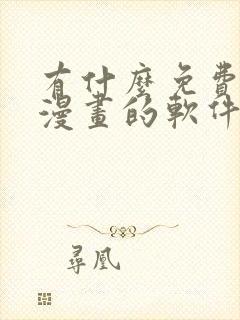 有什麼免費
漫畫的軟件
尋凰